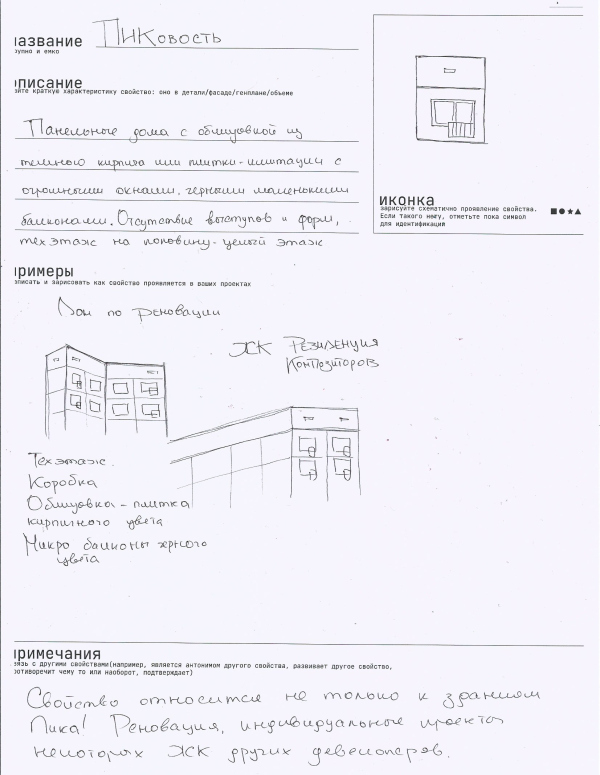 название
ПИКовость
крупно и емко
описание
дайте краткую характеристику свойство: оно в детали/фасаде/генплане/объеме
Панельные дома с облицовкой из
темного кирпича или плитки-имитации с
огромными окнами, черными маленькими
балконами. Отсутствие выступов и форм,
тех этаж на половину - целый этаж
иконка
зарисуйте схематично проявление свойства.
Если такого немогу, отметьте пока символ
для идентификации
■●★▲
примеры
описать и зарисовать как свойство проявляется в ваших проектах
Дом по реновации
ЖК Резиденция
Композиторов
Тех этаж.
Коробка
Облицовка - плитка
кирпичного цвета
Микро балконы черного
цвета
примечания
связь с другими свойствами(например, является антонимом другого свойства, развивает другое свойство,
противоречит чему то или наоборот, подтверждает)
Свойство относится не только к зданиям
Пика! Реновация, индивидуальные проекты
некоторых ЖК других девелоперов.